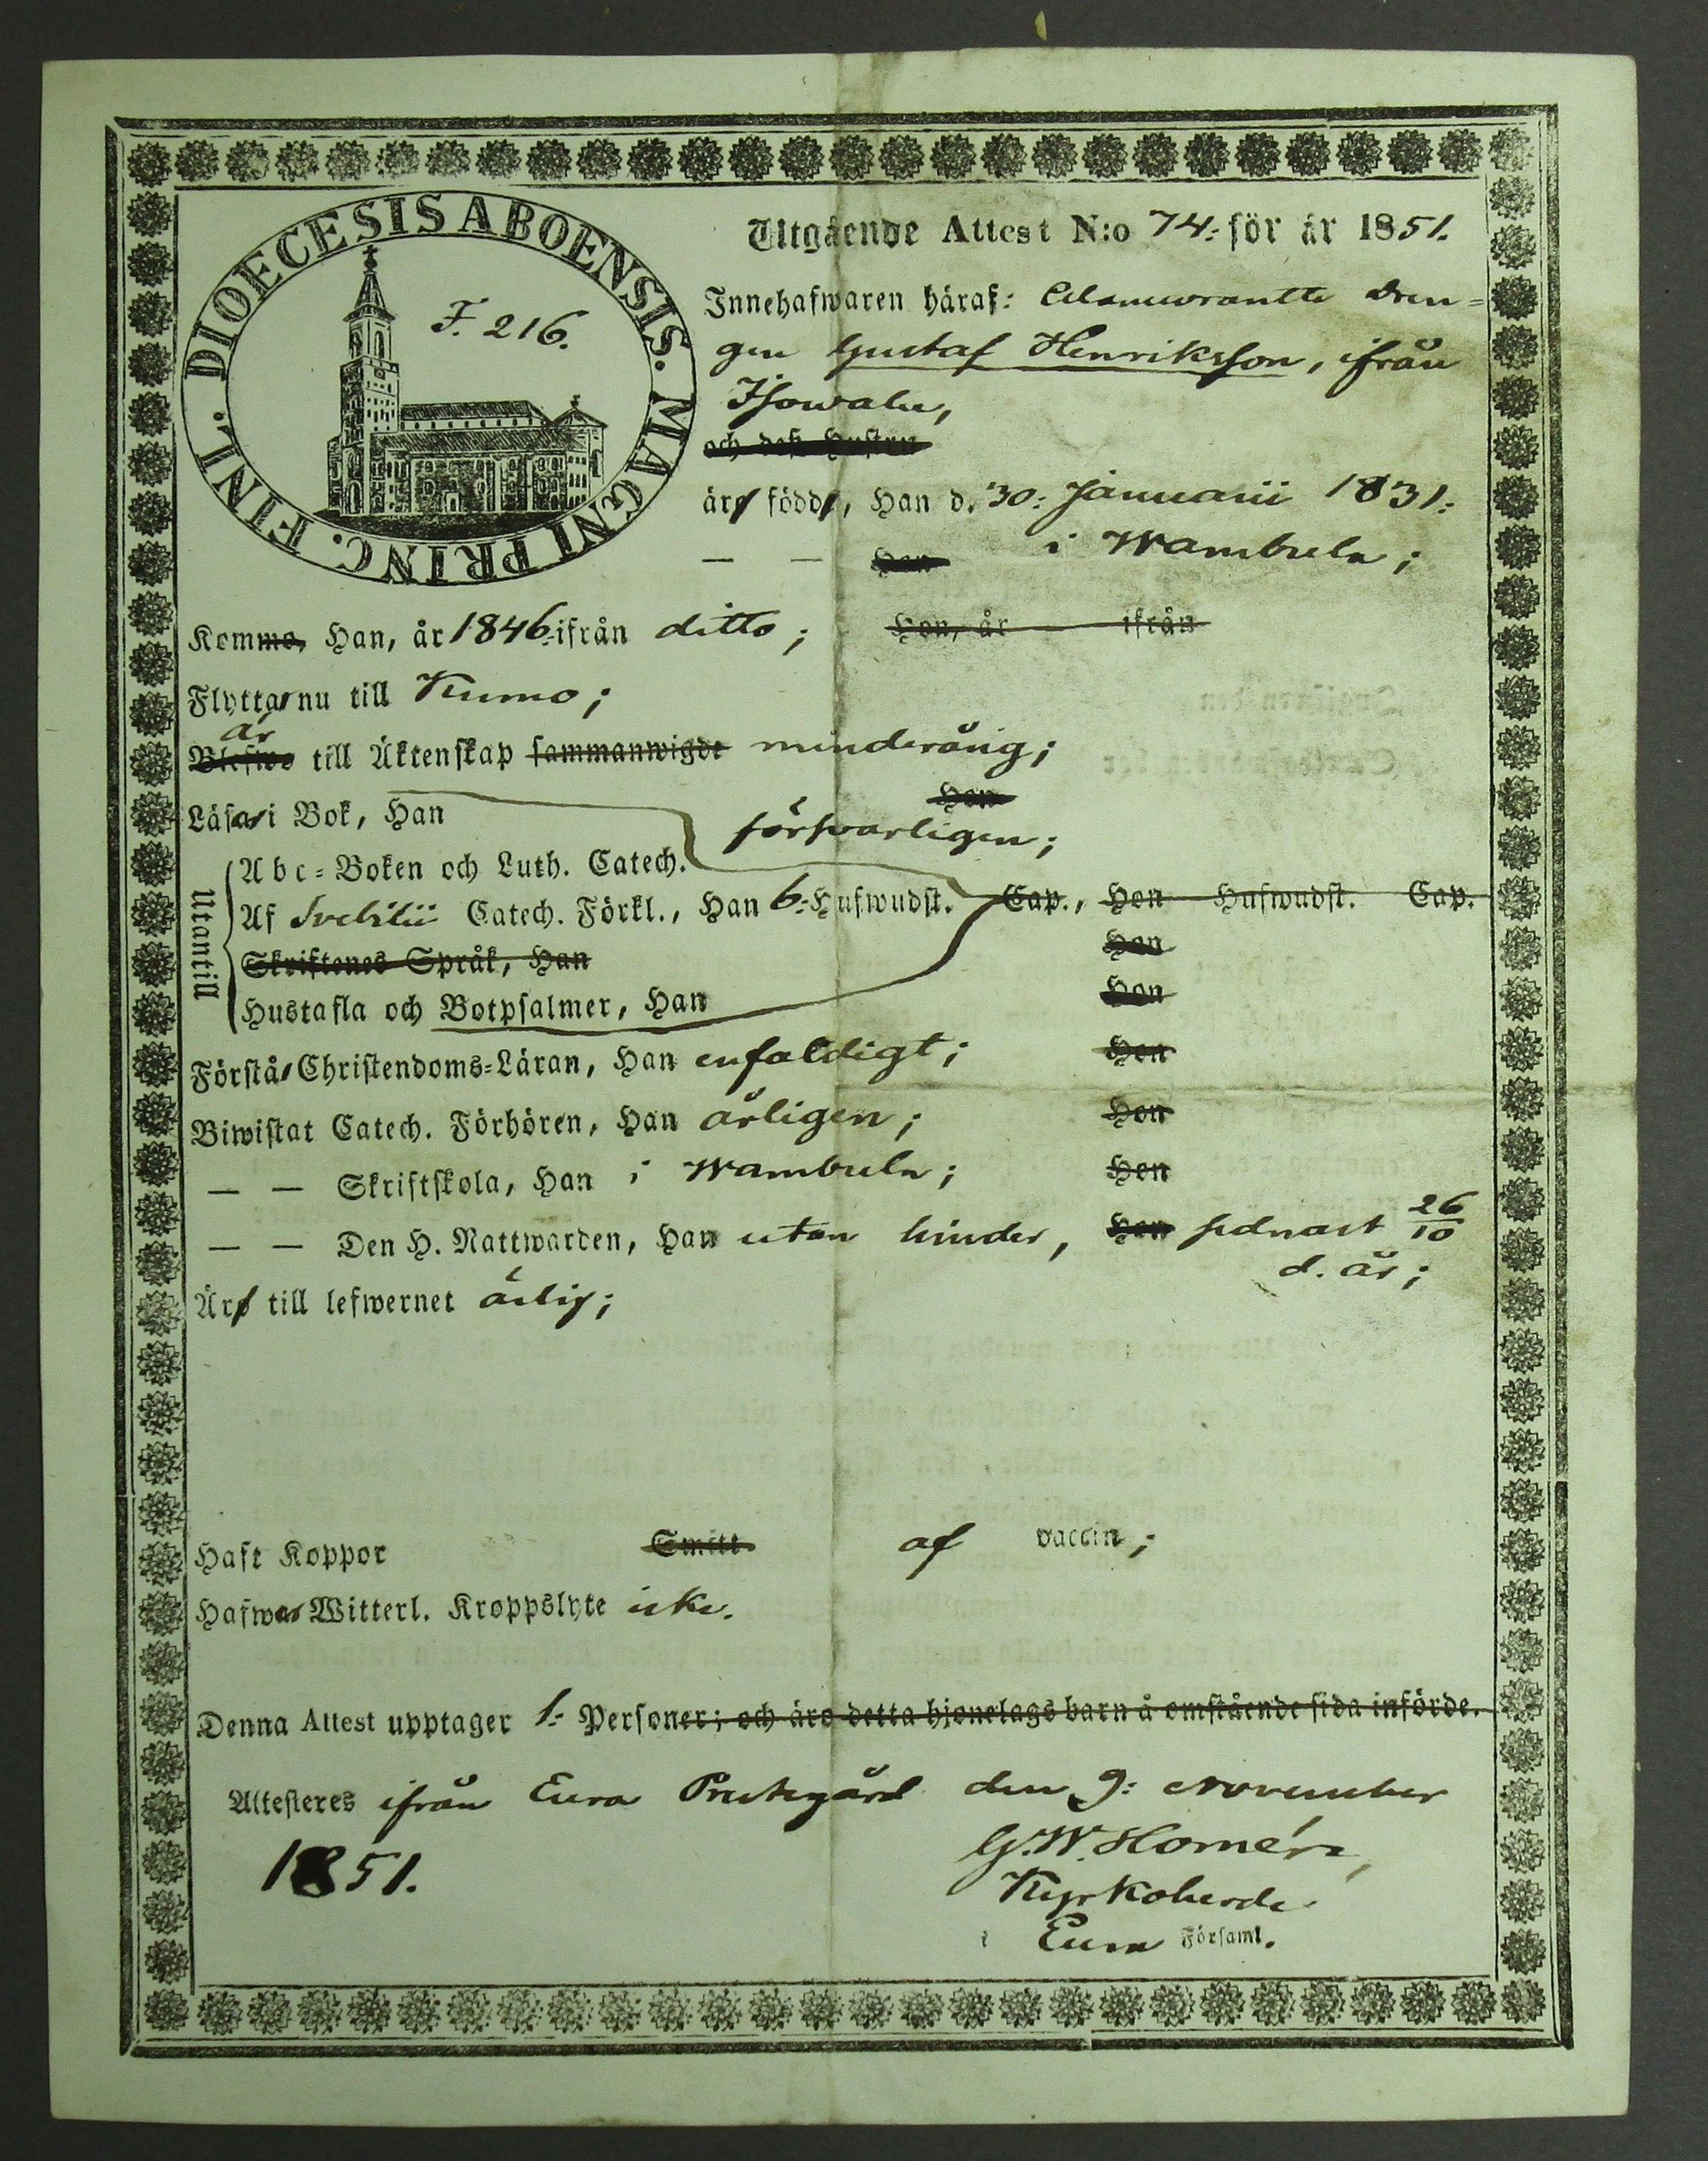 DIOECESIS ABOENSIS. MAGNI PRINC. FINL.
F. 216.
Utgående Attest N:o 74: för år 1851.
Innehafwaren häraf: Dren-
gen Gustaf Henriksson, ifrån
Isowalu,
och dess Hustru
äro födde, Han d. 30: Januarii 1831:
— — Hon i Wambula;
Komme, Han, år 1846: ifrån ditto; Hon, år ifrån
Flyttar nu till Kumo;
är
Blefwo till Äktenskap sammanwigde minderårig;
Läsa i Bok, Han försvarligen; Hon
Utantill
Abc-Boken och Luth. Catech.
Af Svebilii Catech. Förkl., Han 6: Hufwudst. Cap., Hon Hufwudst. Cap.
Skriftenes Språk, Han Hon
Hustafla och Botpsalmer, Han Hon
Förstå Christendoms-Läran, Han enfaldigt; Hon
Biwistat Catech. Förhören, Han årligen; Hon
— — Skriftskola, Han i Wambula; Hon
— — Den H. Nattwarden, Han utan hinder, Hon sednast 26/10
d. år;
Äro till lefwernet ärlig;
Haft Koppor Smitt. af vaccin;
Hafwa Witterl. Kroppslyte icke.
Denna Attest upptager 1: Personer; och äro detta hjonelags barn å omstående sida införde.
Attesteres ifrån Eura Prestegård den 9: November
1851.
G. W. Homén,
Kyrkoherde
i Eura Församl.